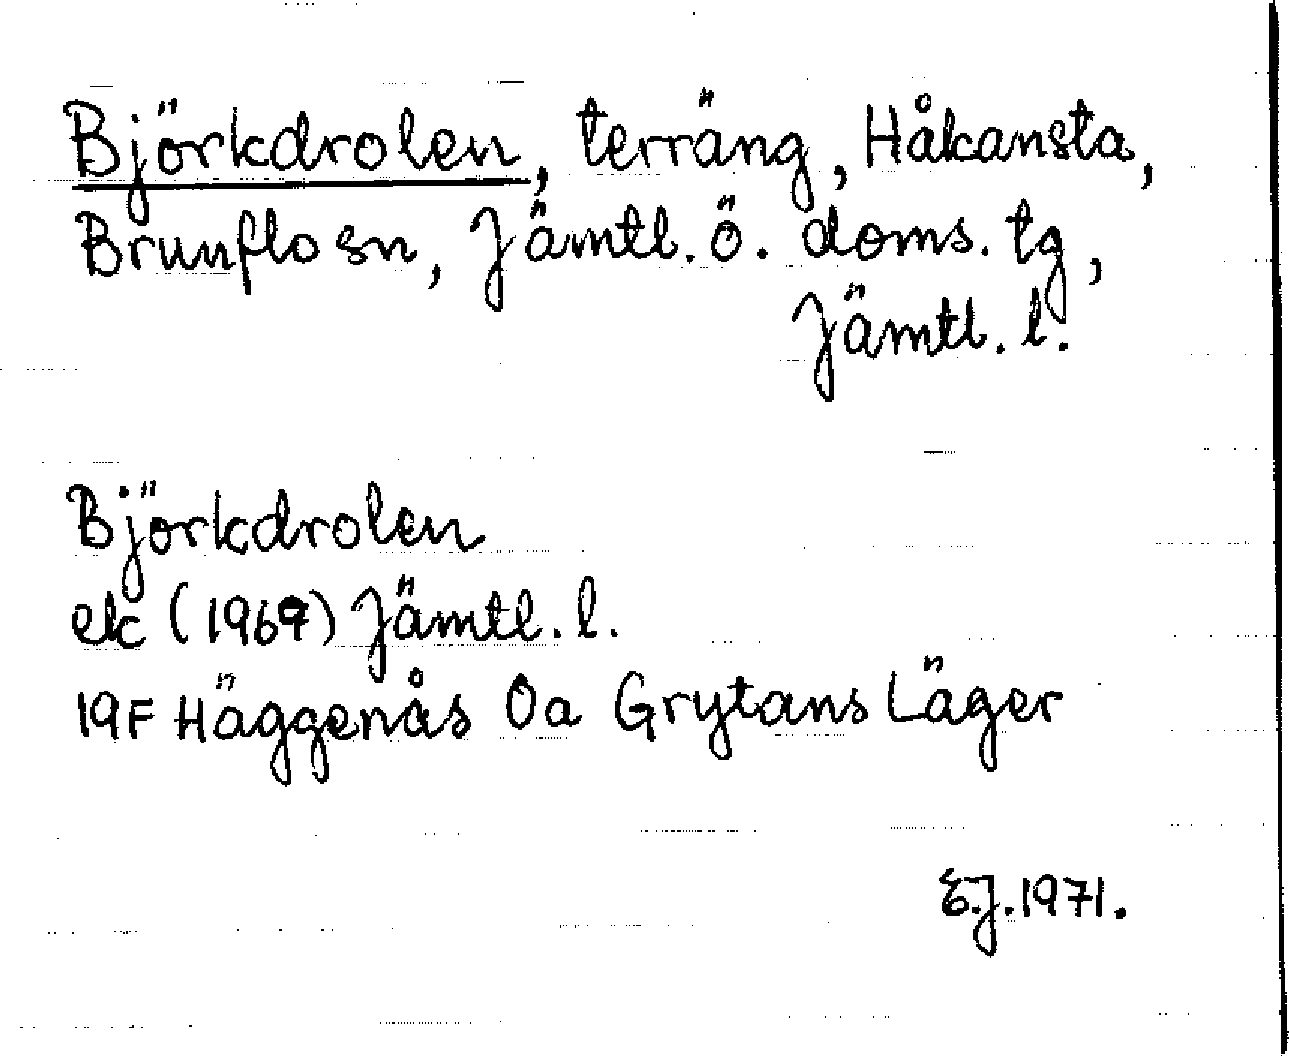 Björkdrolen, terräng, Håkansta,
Brunflo sn, Jämtl. ö. doms. tg,
Jämtl. l.
Björkdrolen
ek (1969) Jämtl. l.
19F Häggenås 0a Grytans Läger
E.J. 1971.